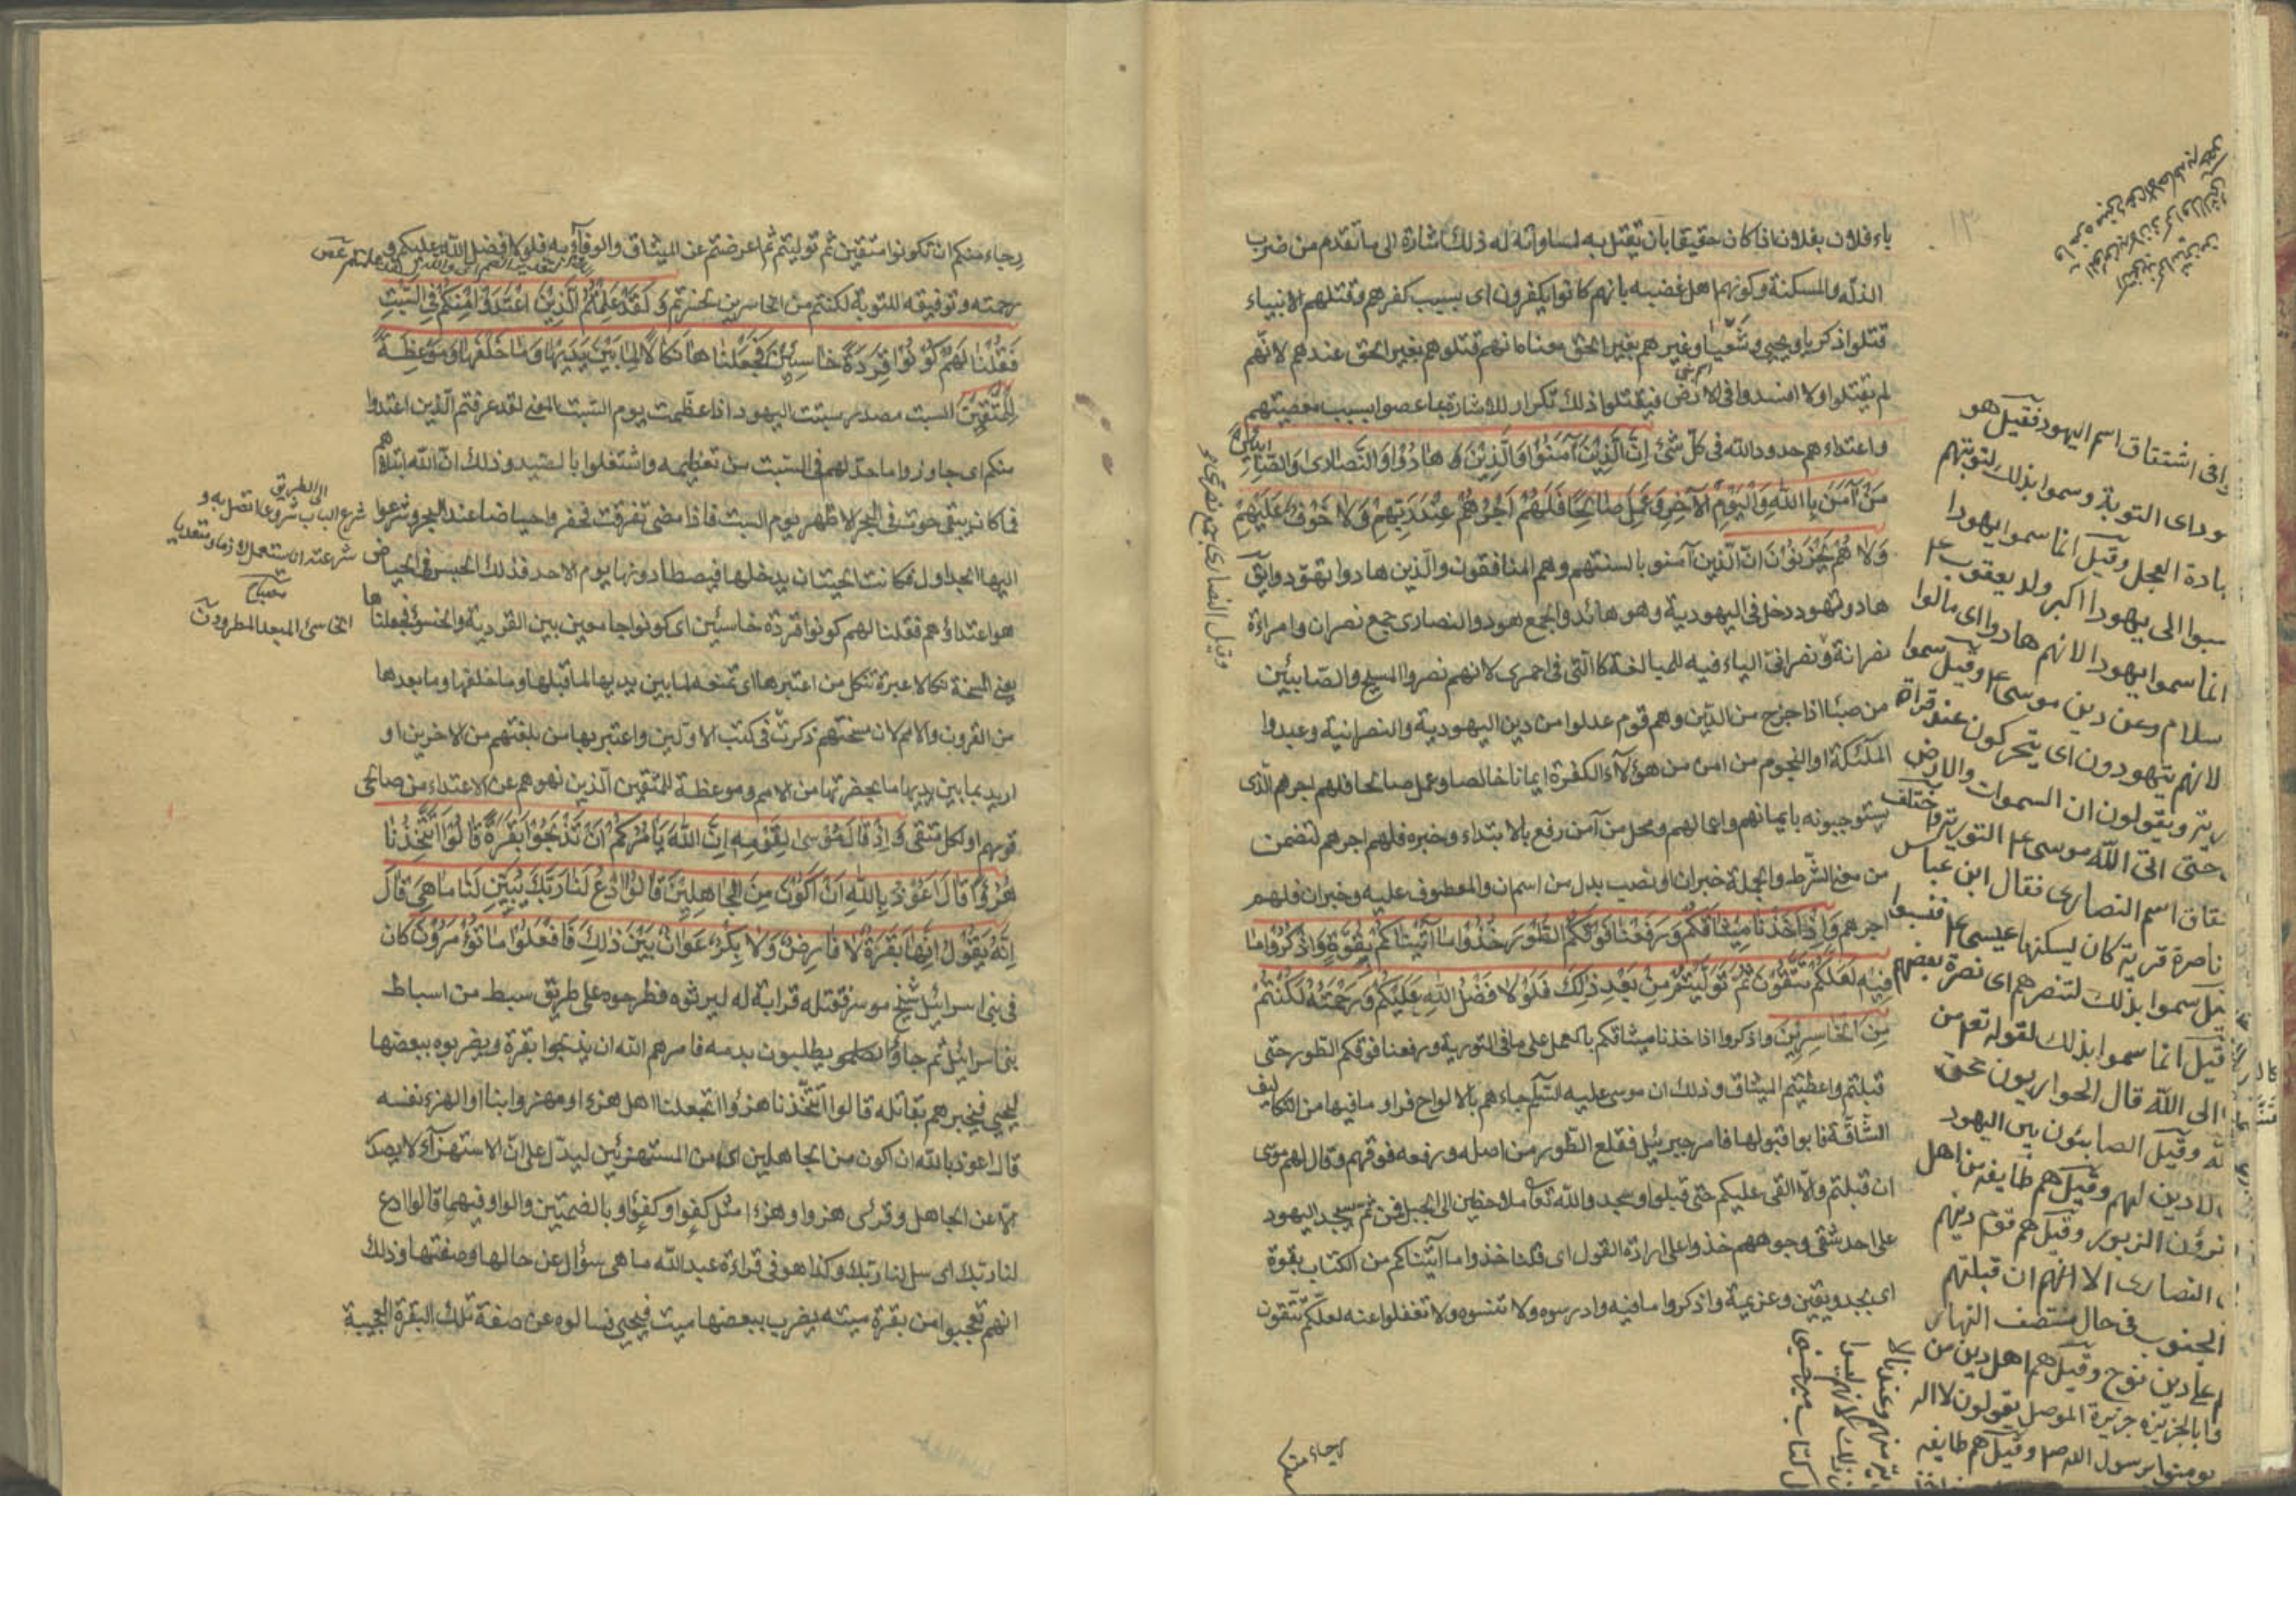 باء فلان بفلان اذا كان حقيقا بان يقتل به لمساواته له ذلك اشارة الى ما تقدم من ضرب
الذلة والمسكنة وكونهم اهل غضبه بانهم كانوا يكفرون اى بسبب كفرهم وقتلهم الانبياء
قتلوا ذكريا ويحيى وشعيا وغيرهم بغير الحق معناه انهم قتلوهم بغير الحق عندهم لانهم
لم يقتلوا ولا افسدوا فى الارض فيقتلوا ذلك تكرار للاشارة بما عصوا بسبب معصيتهم
واعتداءهم حدود الله فى كل شئ اِنَّ الَّذِينَ آمَنُوا وَالَّذِينَ هَادُوا وَالنَّصَارٰى وَالصَّابِئِينَ
مَنْ آمَنَ بِاللّٰهِ وَالْيَوْمِ الْآخِرِ وَعَمِلَ صَالِحًا فَلَهُمْ اَجْرُهُمْ عِنْدَ رَبِّهِمْ وَلَا خَوْفٌ عَلَيْهِمْ
وَلَا هُمْ يَحْزَنُونَ ان الذين آمنو بالسنتهم وهم المنافقون والذين هادوا تهودوا يق
هاد وتهود دخل فى اليهودية وهو هائد والجمع هود والنصارى جمع نصران وامراءة
نصرانة ونصرانى الياء فيه للمبالغة كالتى فى احمرى لانهم نصروا المسيح والصابئين
من صبئا اذا خرج من الدين وهم قوم عدلوا من دين اليهودية والنصرانية وعبدوا
الملئكة او النجوم من امن من هؤلاء الكفرة ايمانا خالصا وعمل صالحا فلهم اجرهم الذى
يستوجبونه بايمانهم واعمالهم ومحل من آمن رفع بالابتداء وخبره فلهم اجرهم لتضمن
من معنى الشرط والجملة خبر ان او نصب بدل من اسم ان والمعطوف عليه وخبر ان فلهم
اجرهم وَاِذْ اَخَذْنَا مِيثَاقَكُمْ وَرَفَعْنَا فَوْقَكُمُ الطُّورَ خُذُوا مَا آتَيْنَاكُمْ بِقُوَّةٍ وَاذْكُرُوا مَا
فِيهِ لَعَلَّكُمْ تَتَّقُونَ ثُمَّ تَوَلَّيْتُمْ مِنْ بَعْدِ ذٰلِكَ فَلَوْلَا فَضْلُ اللّٰهِ عَلَيْكُمْ وَرَحْمَتُهُ لَكُنْتُمْ
مِنَ الْخَاسِرِينَ واذكروا اذ اخذنا ميثاقكم بالعمل على ما فى التورية ورفعنا فوقكم الطور حتى
قبلتم واعطيتم الميثاق وذلك ان موسى عليه السلم جاءهم بالالواح فراو ما فيها من التكاليف
الشاقة فابوا قبولها فامر جبرئيل فقلع الطور من اصله ورفعه فوقهم وقال لهم موسى
ان قبلتم والا القى عليكم حتى قبلوا وسجدوا لله تعا ملاحظين الى الجبل فمن ثم يسجد اليهود
على احد شقى وجوههم خذوا على ارادة القول اى قلنا خذوا ما آتيناكم من الكتاب بقوة
اى بجد ويقين وعزيمة واذكروا ما فيه وادرسوه ولا تنسوه ولا تغفلوا عنه لعلكم تتقون
رجاء منكم
وقيل النصارى جمع نصرى
فى اشتقاق اسم اليهود فقيل هو
هود اى التوبة وسموا بذلك لتوبتهم
عبادة العجل وقيل انما سموا يهودا
نسبوا الى يهودا اكبر ولد يعقوب ع
انما سموا يهودا لانهم هادوا اى مالوا
سلام وعن دين موسى ع وقيل سموا
لانهم يتهودون اى يتحركون عند قراة
رية ويقولون ان السموات والارض
حتى اتى الله موسى ع التورية واختلف
تقاق اسم النصارى فقال ابن عباس
ناصرة قرية كان يسكنها عيسى ع فنسبوا
قيل سموا بذلك لتنصرهم اى نصرة بعضهم
قيل انما سموا بذلك لقوله تع من
الى الله قال الحواريون نحن
لله وقيل الصابئون بين اليهود
لا دين لهم وقيل هم طايفة من اهل
يقرؤن الزبور وقيل هم قوم دينهم
النصارى الا انهم ان قبلتهم
الجنوب فى حال منتصف النهار
على دين نوح وقيل هم اهل دين من
بالجزيرة جزيرة الموصل يقولون لا اله
يومنوا برسول الله ص وقيل هم طايفة
رجاء منكم ان تكونوا متقين ثم توليتم ثم اعرضتم عن الميثاق والوفاء به فلولا فضل الله عليكم و
رحمته وتوفيقه للتوبة لكنتم من الخاسرين لخسرتم وَلَقَدْ عَلِمْتُمُ الَّذِينَ اعْتَدَوْا مِنْكُمْ فِى السَّبْتِ
فَقُلْنَا لَهُمْ كُونُوا قِرَدَةً خَاسِئِينَ فَجَعَلْنَاهَا نَكَالًا لِمَا بَيْنَ يَدَيْهَا وَمَا خَلْفَهَا وَمَوْعِظَةً
لِلْمُتَّقِينَ السبت مصدر سبتت اليهود اذا عظمت يوم السبت المعنى لقد عرفتم الذين اعتدوا
منكم اى جاوزوا ما حد لهم فى السبت من تعظيمه واشتغلوا بالصيد وذلك ان الله ابتلاهم
فما كان يبقى حوت فى البحر الا ظهر يوم السبت فاذا مضى تفرقت فحفروا حياضا عند البحر وشرعوا
اليها الجداول فكانت الحيتان يدخلها فيصطادونها يوم الاحد فذلك الحبس فى الحياض
هو اعتداؤهم فقلنا لهم كونوا قردة خاسئين اى كونوا جامعين بين القردية والخسؤ فجعلناها
يعنى المسخة نكالا عبرة تنكل من اعتبرها اى تمنعه لما بين يديها لما قبلها وما خلفها وما بعدها
من القرون والامم لان مسختهم ذكرت فى كتب الاولين واعتبر بها من بلغتهم من الاخرين او
اريد بما بين يديها ما بحضرتها من الامم وموعظة للمتقين الذين نهوهم عن الاعتداء من صالحى
قومهم او لكل متقى وَاِذْ قَالَ مُوسٰى لِقَوْمِهِ اِنَّ اللّٰهَ يَأْمُرُكُمْ اَنْ تَذْبَحُوا بَقَرَةً قَالُوا اَتَتَّخِذُنَا
هُزُوًا قَالَ اَعُوذُ بِاللّٰهِ اَنْ اَكُونَ مِنَ الْجَاهِلِينَ قَالُوا ادْعُ لَنَا رَبَّكَ يُبَيِّنْ لَنَا مَا هِىَ قَالَ
اِنَّهُ يَقُولُ اِنَّهَا بَقَرَةٌ لَا فَارِضٌ وَلَا بِكْرٌ عَوَانٌ بَيْنَ ذٰلِكَ فَافْعَلُوا مَا تُؤْمَرُونَ كان
فى بنى اسرائيل شيخ موسر فقتله قرابة له ليرثوه فطرحوه على طريق سبط من اسباط
بنى اسرائيل ثم جاؤا يطلبون بدمه فامرهم الله ان يذبحوا بقرة ويضربوه ببعضها
ليحيى فيخبرهم بقاتله قالوا اتتخذنا هزؤا اتجعلنا اهل هزء او مهزوا بنا او الهزء نفسه
قال اعوذ بالله ان اكون من الجاهلين اى من المستهزئين ليدل على ان الاستهزاء لا يصدر
الا عن الجاهل وقرئ هزوا وهزءا مثل كفوا وكفؤا وبالضمتين والواو فيهما قالوا ادع
لنا ربك اى سل لنا ربك وكذا هو فى قراءة عبد الله ما هى سؤال عن حالها وصفتها وذلك
انهم تعجبوا من بقرة ميتة يضرب ببعضها ميت فيحيى فسالوه عن صفة تلك البقرة العجيبة
الى الطريق
شرع الباب شروعا اتصل به و
شرعته انا يستعمل لازما ومتعديا
مصباح
الخاسئ المبعد المطرود